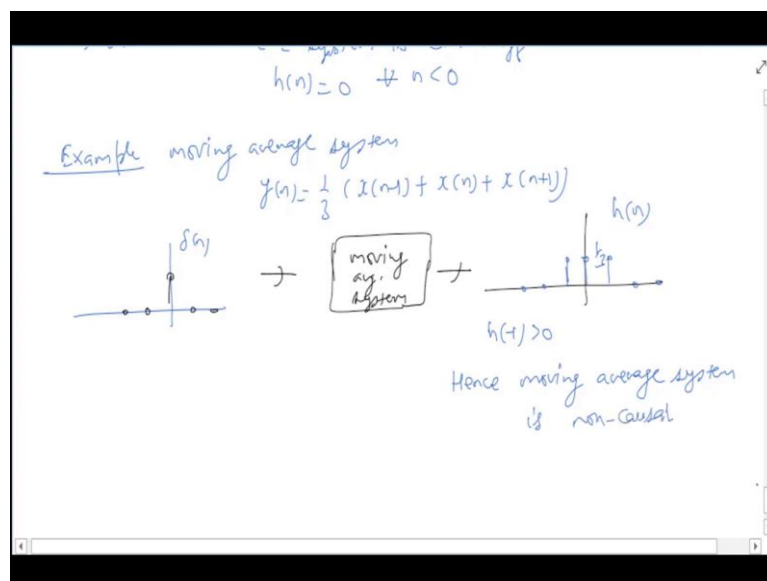 system is
h(n) = 0 ∀ n < 0
Example moving average system
y(n) = 1/3 (x(n-1) + x(n) + x(n+1))
δ(n)
h(n)
1/3
moving
avg.
system
h(-1) > 0
Hence moving average system
is non-causal